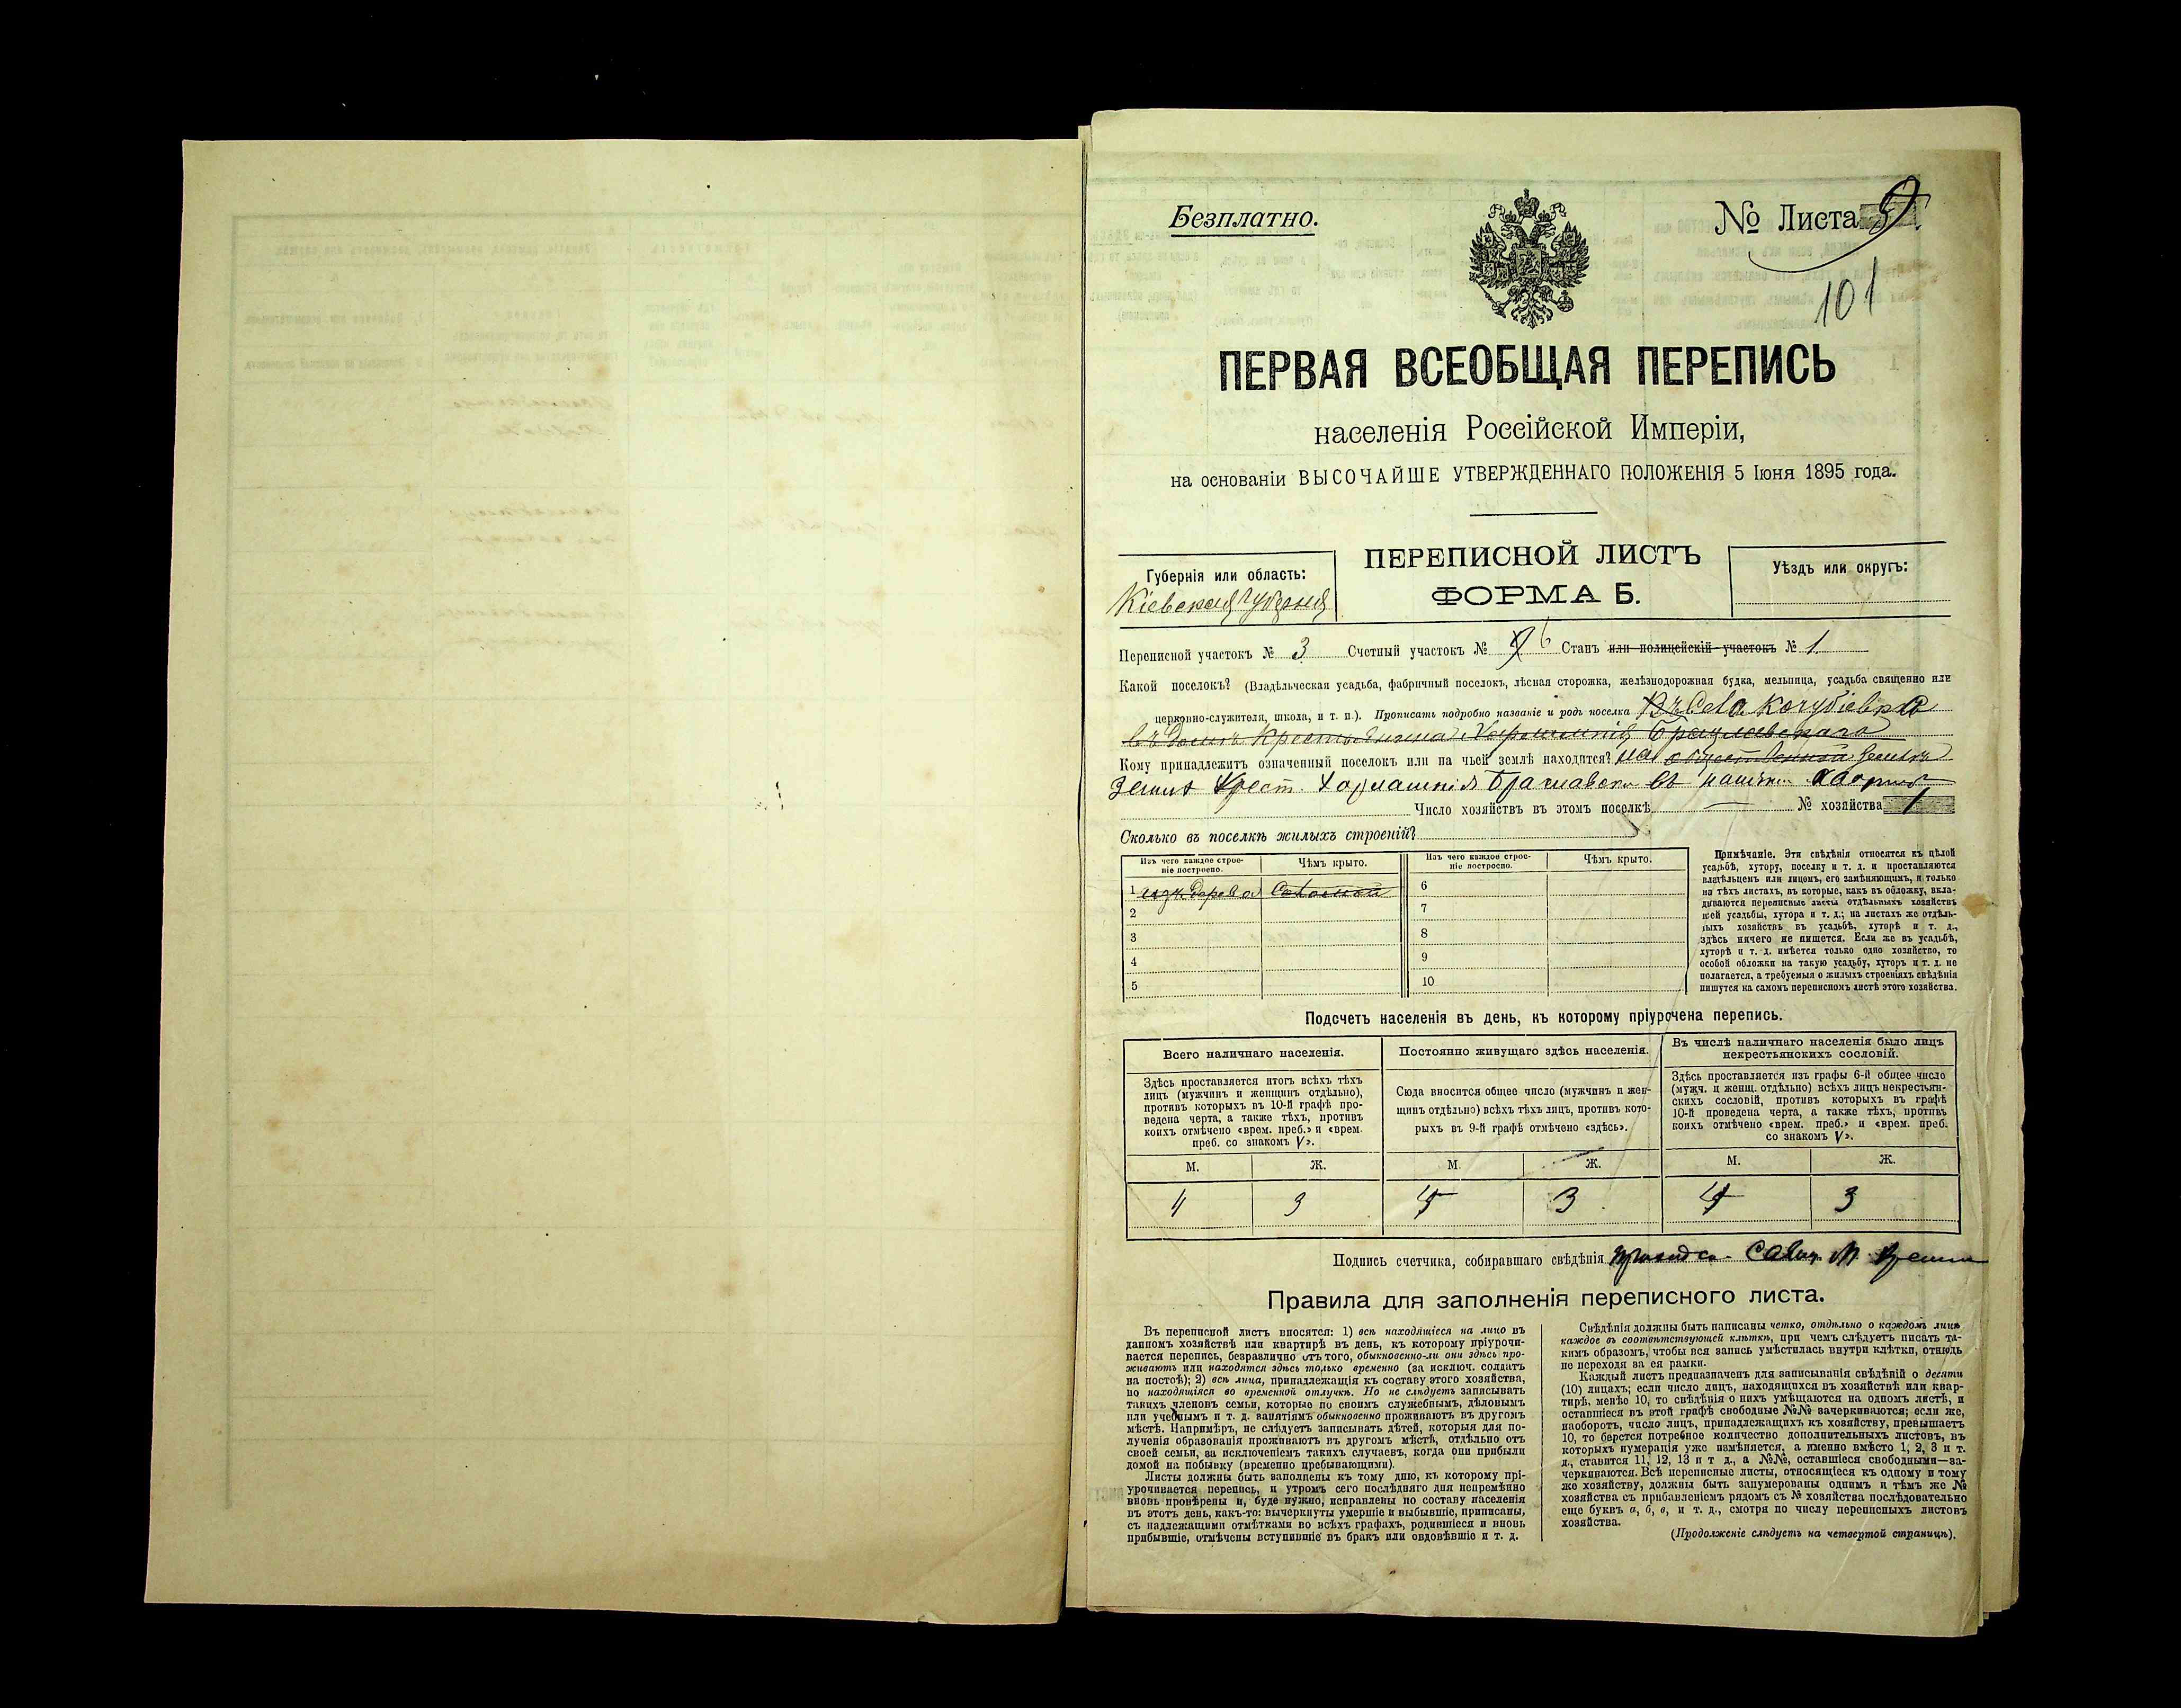 Безплатно.
№ Листа 9.
101
ПЕРВАЯ ВСЕОБЩАЯ ПЕРЕПИСЬ
населенія Россійской Имперіи,
на основаніи ВЫСОЧАЙШЕ УТВЕРЖДЕННАГО ПОЛОЖЕНІЯ 5 Іюня 1895 года.
ПЕРЕПИСНОЙ ЛИСТЪ
ФОРМА Б.
Губернія или область:
Кіевская Губернія
Уѣздъ или округъ:
Переписной участокъ № 3 Счетный участокъ № 6 Станъ или полицейскій участокъ № 1
Какой поселокъ? (Владѣльческая усадьба, фабричный поселокъ, лѣсная сторожка, желѣзнодорожная будка, мельница, усадьба священно или
церковно-служителя, школа, и т. п.). Прописать подробно названіе и родъ поселка Въ Села Кочубіевка
въ домѣ Крестьянина Браславскаго
Кому принадлежитъ означенный поселокъ или на чьей землѣ находится? на общественной землѣ
земля Крест. Браславски въ
Число хозяйствъ въ этомъ поселкѣ — № хозяйства 1
Сколько въ поселкѣ жилыхъ строеній?
Изъ чего каждое строе-
ніе построено.
Чѣмъ крыто.
Изъ чего каждое строе-
ніе построено.
Чѣмъ крыто.
1 изъ дерева Соломой
2
3
4
5
6
7
8
9
10
Примѣчаніе. Эти свѣдѣнія относятся къ цѣлой
усадьбѣ, хутору, поселку и т. д. и проставляются
владѣльцемъ или лицомъ, его замѣняющимъ, и только
на тѣхъ листахъ, въ которые, какъ въ обложку, вкла-
дываются переписные листы отдѣльныхъ хозяйствъ
всей усадьбы, хутора и т. д.; на листахъ же отдѣль-
ныхъ хозяйствъ въ усадьбѣ, хуторѣ и т. д.,
здѣсь ничего не пишется. Если же въ усадьбѣ,
хуторѣ и т. д. имѣется только одно хозяйство, то
особой обложки на такую усадьбу, хуторъ и т. д. не
полагается, а требуемыя о жилыхъ строеніяхъ свѣдѣнія
пишутся на самомъ переписномъ листѣ этого хозяйства.
Подсчетъ населенія въ день, къ которому пріурочена перепись.
Всего наличнаго населенія.
Здѣсь проставляется итогъ всѣхъ тѣхъ
лицъ (мужчинъ и женщинъ отдѣльно),
противъ которыхъ въ 10-й графѣ про-
ведена черта, а также тѣхъ, противъ
коихъ отмѣчено «врем. преб.» и «врем.
преб. со знакомъ V».
Постоянно живущаго здѣсь населенія.
Сюда вносится общее число (мужчинъ и жен-
щинъ отдѣльно) всѣхъ тѣхъ лицъ, противъ кото-
рыхъ въ 9-й графѣ отмѣчено «здѣсь».
Въ числѣ наличнаго населенія было лицъ
некрестьянскихъ сословій.
Здѣсь проставляется изъ графы 6-й общее число
(мужч. и женщ. отдѣльно) всѣхъ лицъ некрестьян-
скихъ сословій, противъ которыхъ въ графѣ
10-й проведена черта, а также тѣхъ, противъ
коихъ отмѣчено «врем. преб.» и «врем. преб.
со знакомъ V».
М. Ж. М. Ж. М. Ж.
4 3 4 3 4 3
Подпись счетчика, собиравшаго свѣдѣнія
Правила для заполненія переписного листа.
Въ переписной листъ вносятся: 1) всѣ находящіеся на лицо въ
данномъ хозяйствѣ или квартирѣ въ день, къ которому пріурочи-
вается перепись, безразлично отъ того, обыкновенно-ли они здѣсь про-
живаютъ или находятся здѣсь только временно (за исключ. солдатъ
на постоѣ); 2) всѣ лица, принадлежащія къ составу этого хозяйства,
но находящіяся во временной отлучкѣ. Но не слѣдуетъ записывать
такихъ членовъ семьи, которые по своимъ служебнымъ, дѣловымъ
или учебнымъ и т. д. занятіямъ обыкновенно проживаютъ въ другомъ
мѣстѣ. Напримѣръ, не слѣдуетъ записывать дѣтей, которыя для по-
лученія образованія проживаютъ въ другомъ мѣстѣ, отдѣльно отъ
своей семьи, за исключеніемъ такихъ случаевъ, когда они прибыли
домой на побывку (временно пребывающими).
Листы должны быть заполнены къ тому дню, къ которому прі-
урочивается перепись, и утромъ сего послѣдняго дня непремѣнно
вновь провѣрены и, буде нужно, исправлены по составу населенія
въ этотъ день, какъ-то: вычеркнуты умершіе и выбывшіе, приписаны,
съ надлежащими отмѣтками во всѣхъ графахъ, родившіеся и вновь
прибывшіе, отмѣчены вступившіе въ бракъ или овдовѣвшіе и т. д.
Свѣдѣнія должны быть написаны четко, отдѣльно о каждомъ лицѣ
каждое въ соотвѣтствующей клѣткѣ, при чемъ слѣдуетъ писать та-
кимъ образомъ, чтобы вся запись умѣстилась внутри клѣтки, отнюдь
не переходя за ея рамки.
Каждый листъ предназначенъ для записыванія свѣдѣній о десяти
(10) лицахъ; если число лицъ, находящихся въ хозяйствѣ или квар-
тирѣ, менѣе 10, то свѣдѣнія о нихъ умѣщаются на одномъ листѣ, и
оставшіеся въ этой графѣ свободные №№ зачеркиваются; если же,
наоборотъ, число лицъ, принадлежащихъ къ хозяйству, превышаетъ
10, то берется потребное количество дополнительныхъ листовъ, въ
которыхъ нумерація уже измѣняется, а именно вмѣсто 1, 2, 3 и т.
д., ставится 11, 12, 13 и т д., а №№, оставшіеся свободными—за-
черкиваются. Всѣ переписные листы, относящіеся къ одному и тому
же хозяйству, должны быть занумерованы однимъ и тѣмъ же №
хозяйства съ прибавленіемъ рядомъ съ № хозяйства послѣдовательно
еще буквъ а, б, в, и т. д., смотря по числу переписныхъ листовъ
хозяйства.
(Продолженіе слѣдуетъ на четвертой страницѣ).